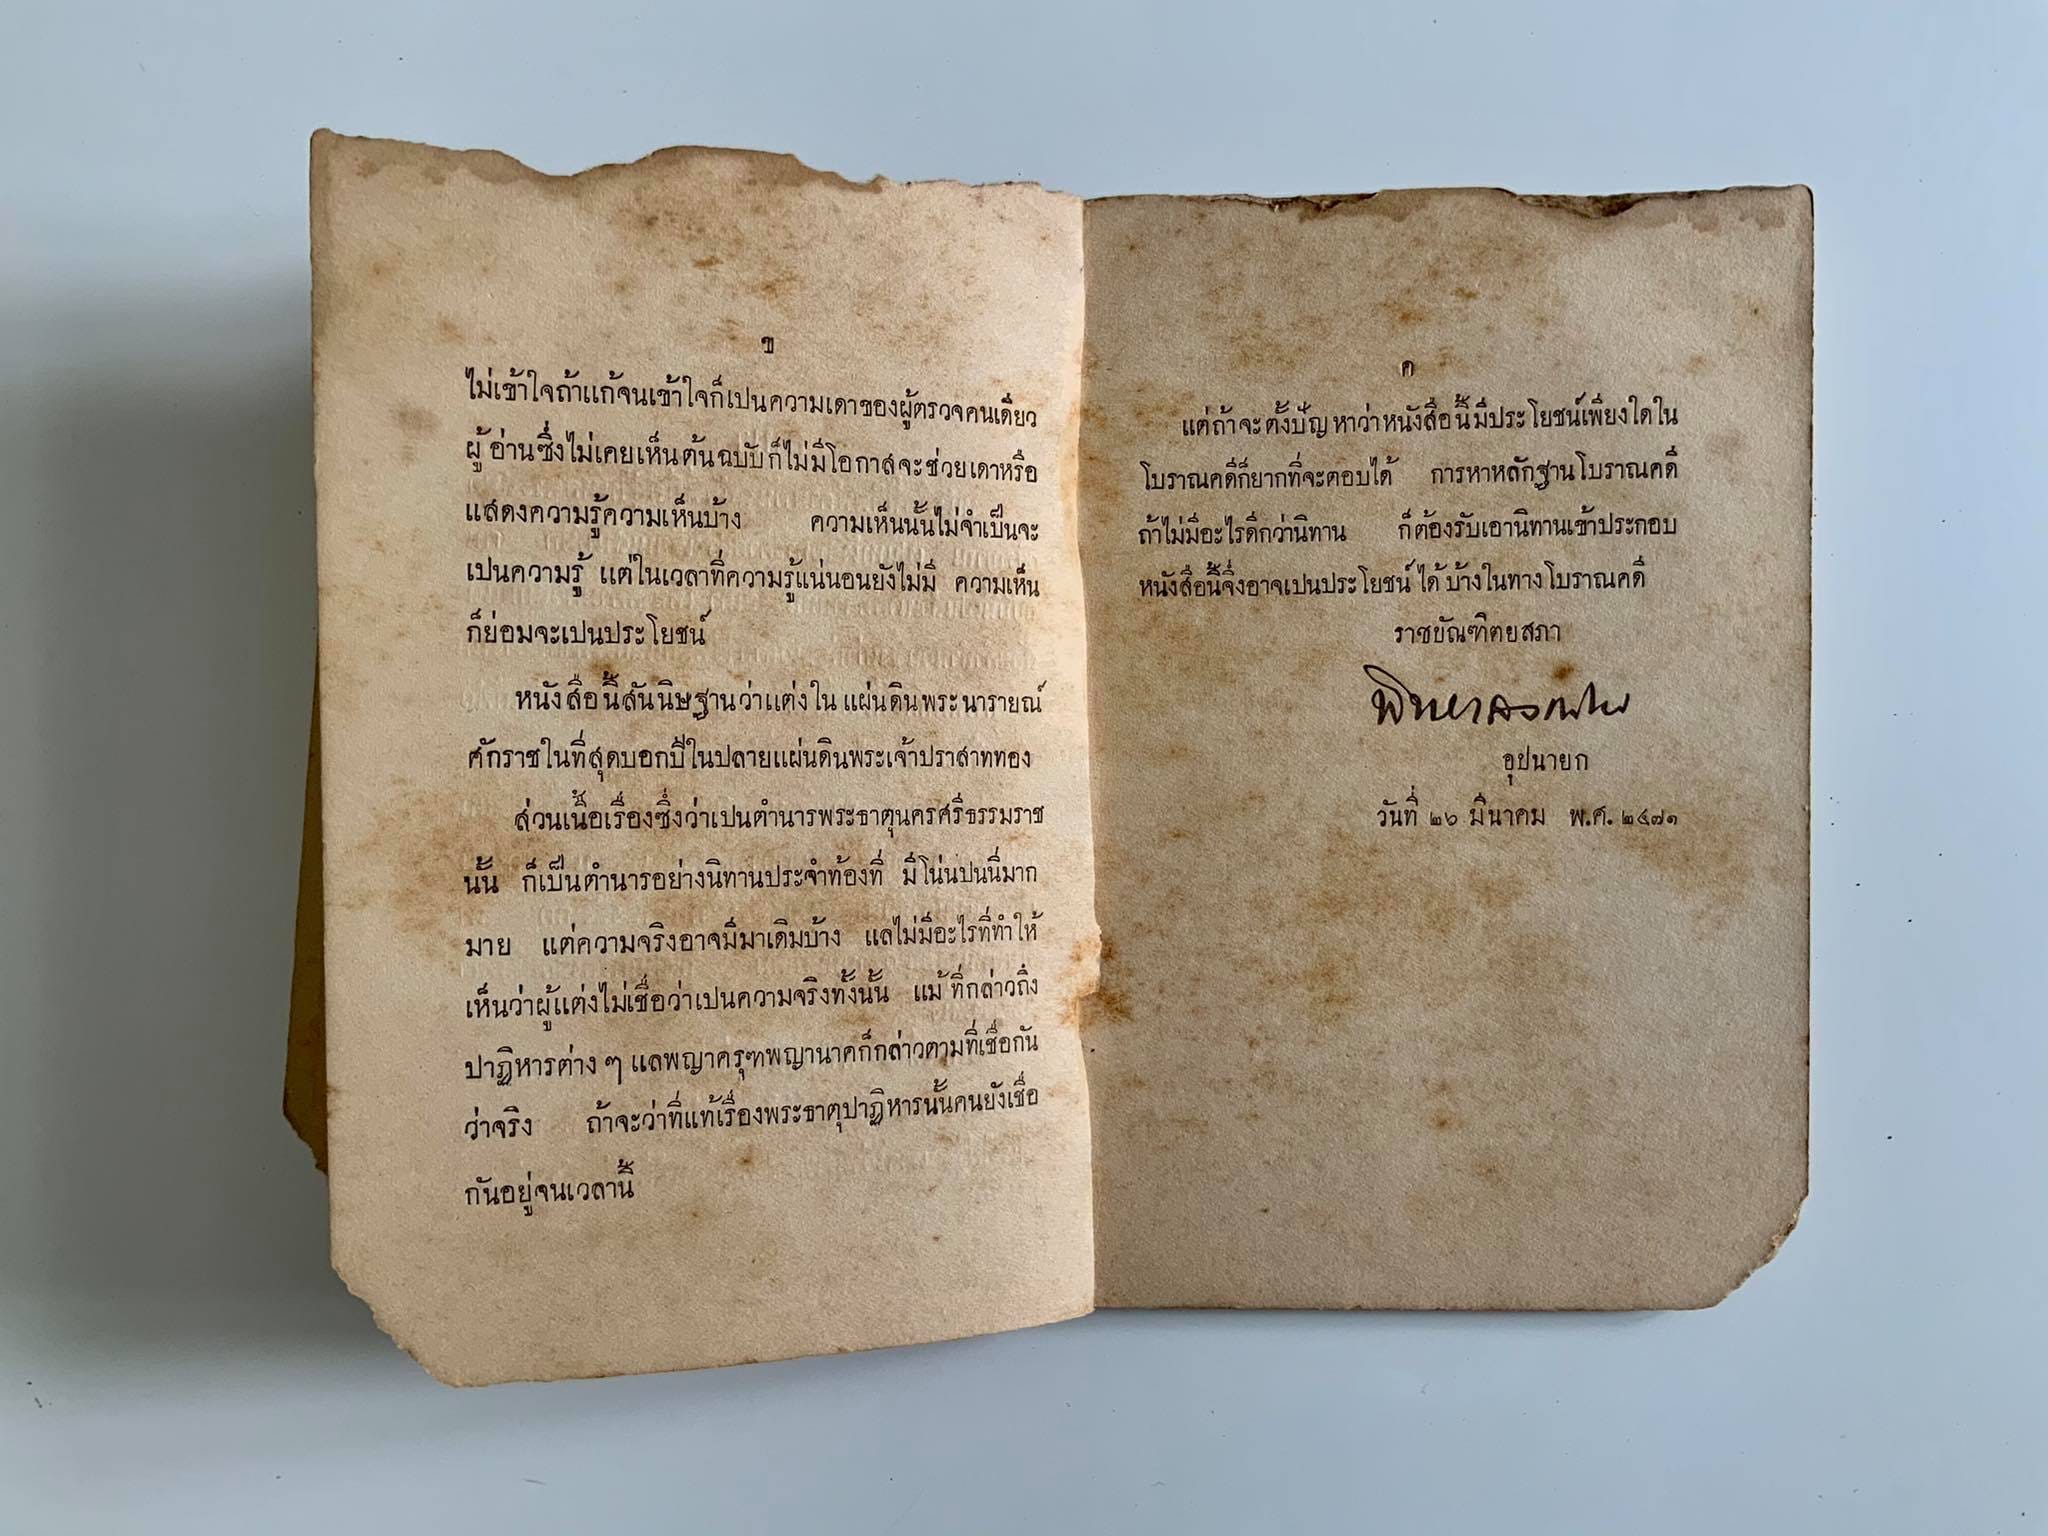 ข
ไม่เข้าใจถ้าแก้จนเข้าใจก็เปนความเดาของผู้ตรวจคนเดียว
ผู้อ่านซึ่งไม่เคยเห็นต้นฉบับก็ไม่มีโอกาสจะช่วยเดาหรือ
แสดงความรู้ความเห็นบ้าง ความเห็นนั้นไม่จำเป็นจะ
เปนความรู้ แต่ในเวลาที่ความรู้แน่นอนยังไม่มี ความเห็น
ก็ย่อมจะเปนประโยชน์
หนังสือนี้สันนิษฐานว่าแต่งในแผ่นดินพระนารายณ์
ศักราชในที่สุดบอกปีในปลายแผ่นดินพระเจ้าปราสาททอง
ส่วนเนื้อเรื่องซึ่งว่าเปนตำนารพระธาตุนครศรีธรรมราช
นั้น ก็เป็นตำนารอย่างนิทานประจำท้องที่ มีโน่นปนนี่มาก
มาย แต่ความจริงอาจมีมาเดิมบ้าง แลไม่มีอะไรที่ทำให้
เห็นว่าผู้แต่งไม่เชื่อว่าเปนความจริงทั้งนั้น แม้ที่กล่าวถึง
ปาฏิหารต่าง ๆ แลพญาครุฑพญานาคก็กล่าวตามที่เชื่อกัน
ว่าจริง ถ้าจะว่าที่แท้เรื่องพระธาตุปาฏิหารนั้นคนยังเชื่อ
กันอยู่จนเวลานี้
ค
แต่ถ้าจะตั้งปัญหาว่าหนังสือนี้มีประโยชน์เพียงใดใน
โบราณคดีก็ยากที่จะตอบได้ การหาหลักฐานโบราณคดี
ถ้าไม่มีอะไรดีกว่านิทาน ก็ต้องรับเอานิทานเข้าประกอบ
หนังสือนี้จึ่งอาจเปนประโยชน์ได้บ้างในทางโบราณคดี
ราชบัณฑิตยสภา
อุปนายก
วันที่ ๒๖ มีนาคม พ.ศ. ๒๔๗๑